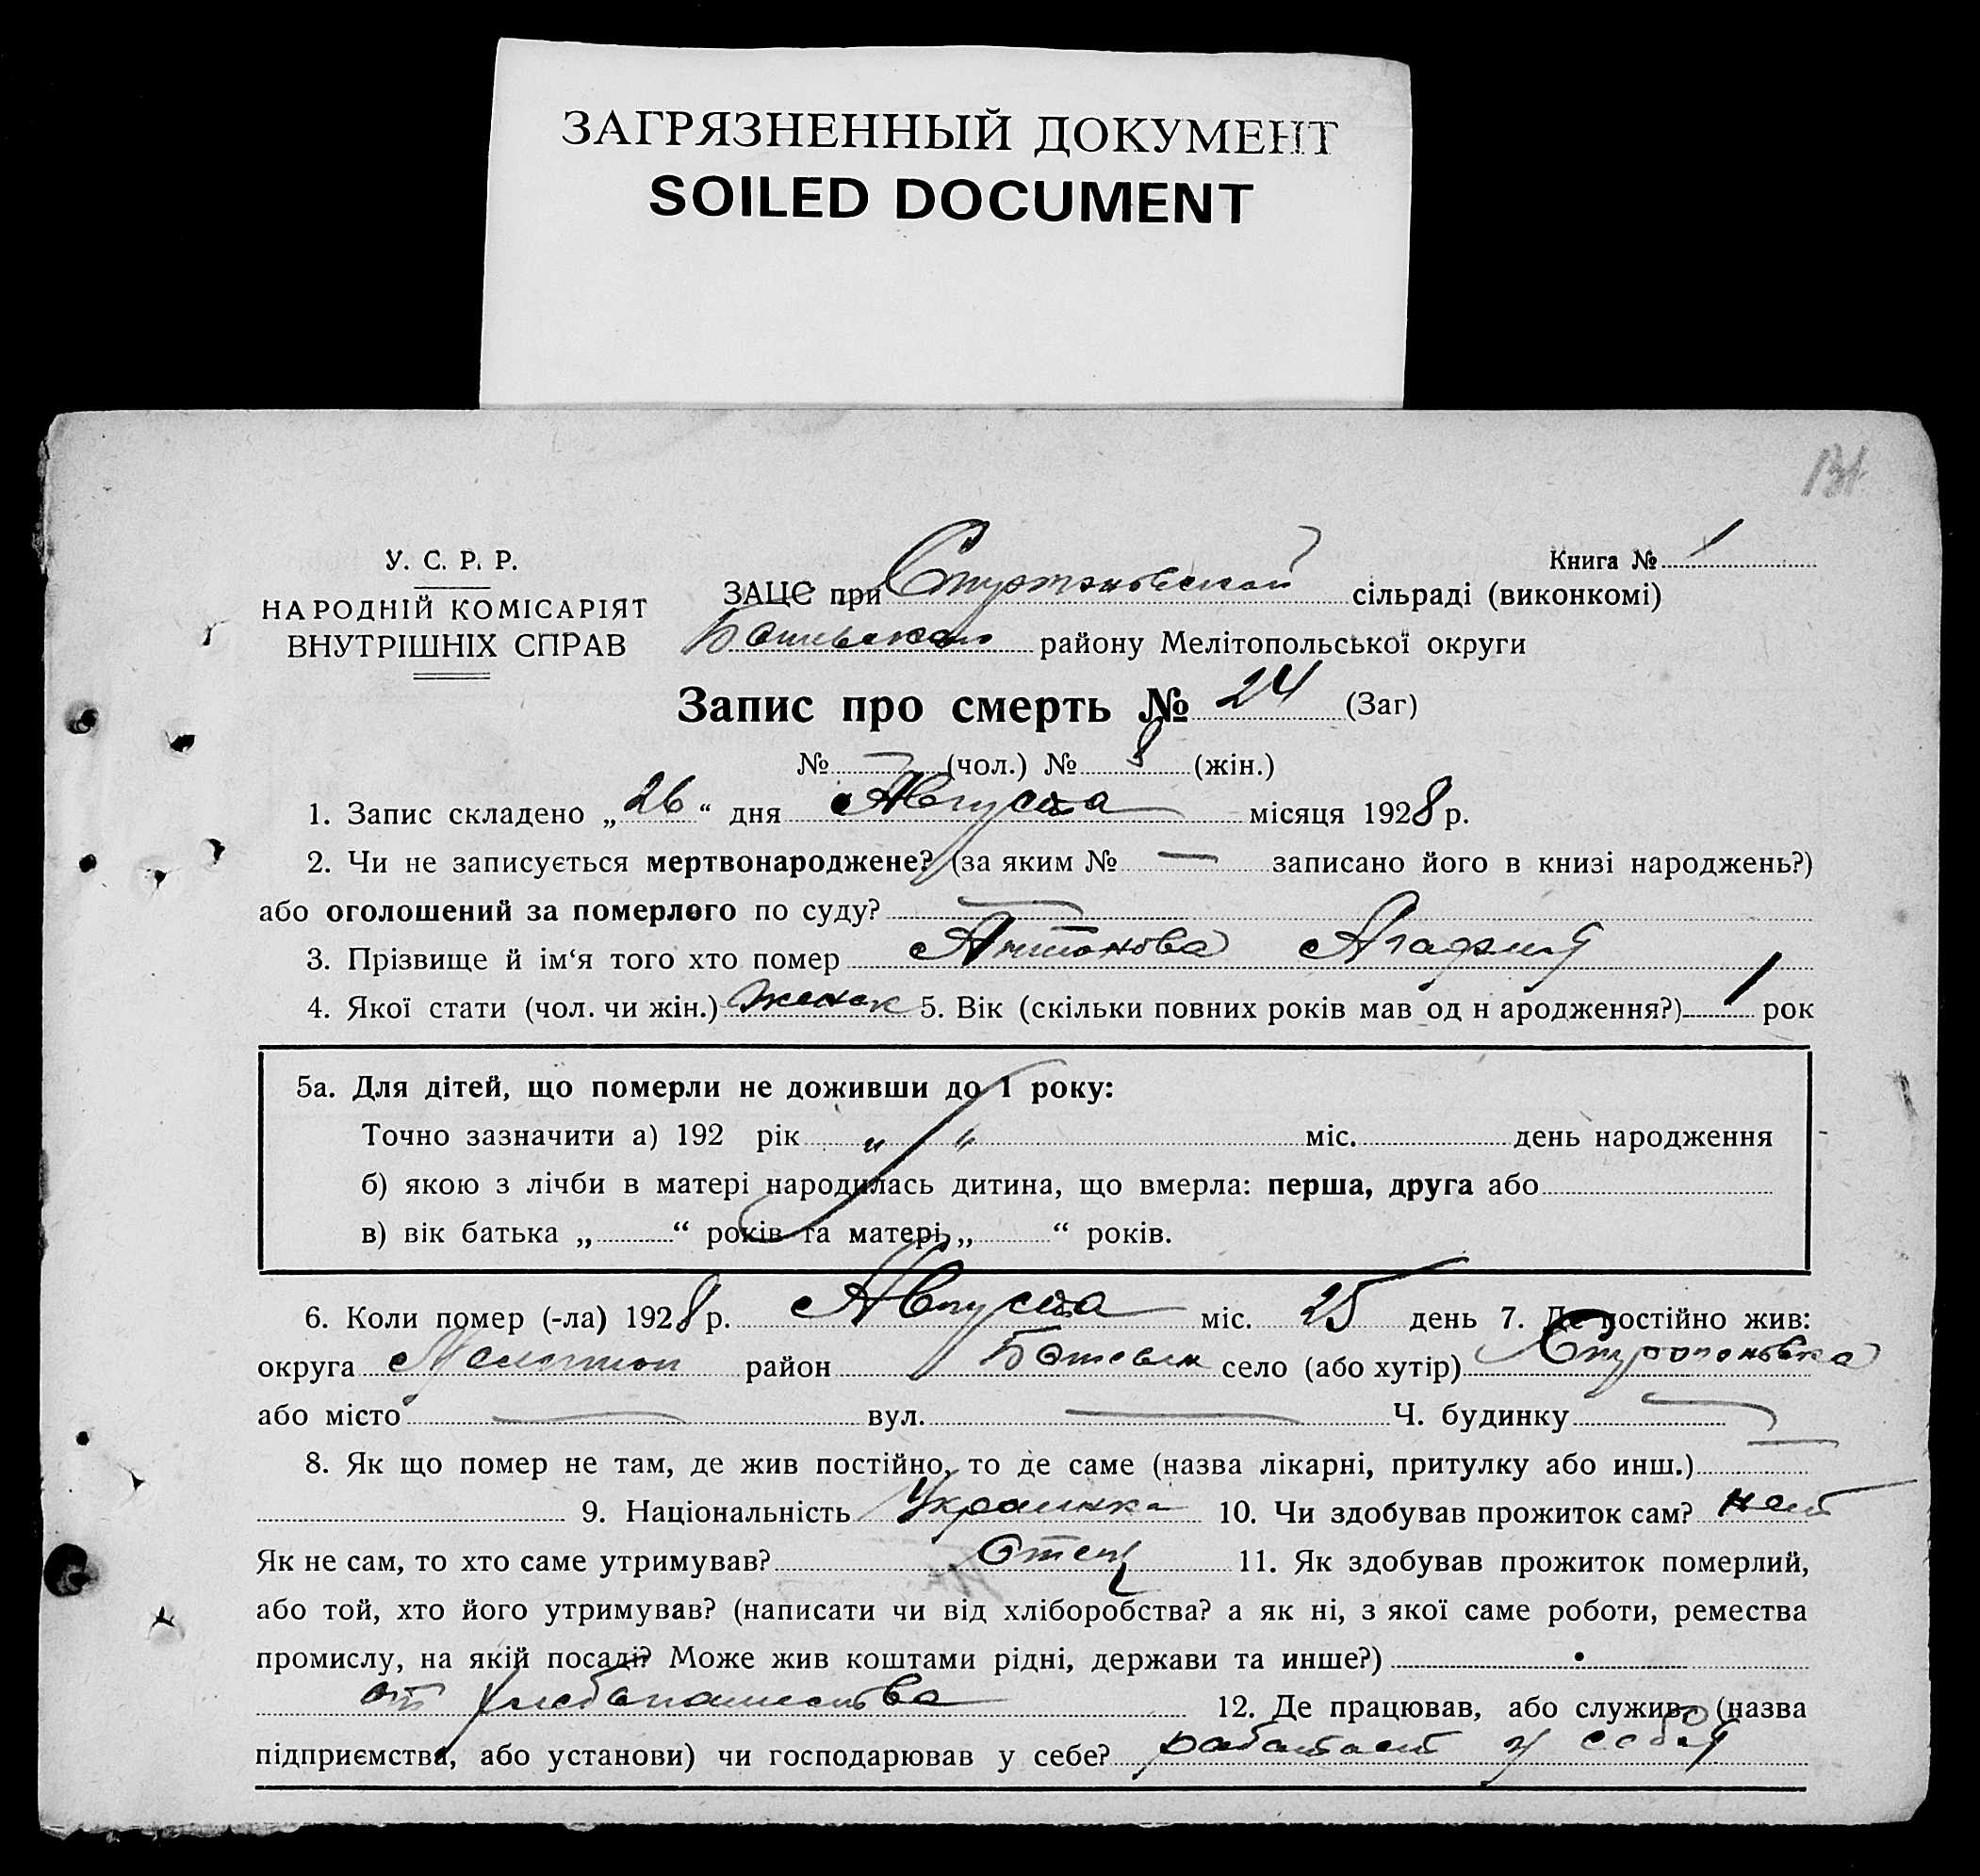 ЗАГРЯЗНЕННЫЙ ДОКУМЕНТ
SOILED DOCUMENT
У. С. Р. Р.
НАРОДНІЙ КОМІСАРІЯТ
ВНУТРІШНІХ СПРАВ
Книга № 1
ЗАЦС при сільраді (виконкомі)
району Мелітопольської округи
Запис про смерть № 24 (Заг)
№ — (чол.) № 8 (жін.)
1. Запис складено „26“ дня Августа місяця 1928 р.
2. Чи не записується мертвонароджене? (за яким № — записано його в книзі народжень?)
або оголошений за померлого по суду? —
3. Прізвище й ім‘я того хто помер Антонова Агафия
4. Якої стати (чол. чи жін.) женск 5. Вік (скільки повних років мав од н ародження?) 1 рок
5а. Для дітей, що померли не доживши до 1 року:
Точно зазначити а) 192 рік „ “ міс. день народження
б) якою з лічби в матері народилась дитина, що вмерла: перша, друга або
в) вік батька „ “ років та матері „ “ років.
6. Коли помер (-ла) 1928 р. Августа міс. 25 день 7. Де постійно жив:
округа Мелитоп район Ботевск село (або хутір)
або місто — вул. — Ч. будинку —
8. Як що помер не там, де жив постійно, то де саме (назва лікарні, притулку або инш.) —
9. Національність Украинка 10. Чи здобував прожиток сам? нет
Як не сам, то хто саме утримував? Отец 11. Як здобував прожиток померлий,
або той, хто його утримував? (написати чи від хліборобства? а як ні, з якої саме роботи, ремества
промислу, на якій посаді? Може жив коштами рідні, держави та инше?)
от хлебопашества 12. Де працював, або служив, (назва
підприємства, або установи) чи господарював у себе? работает у себя